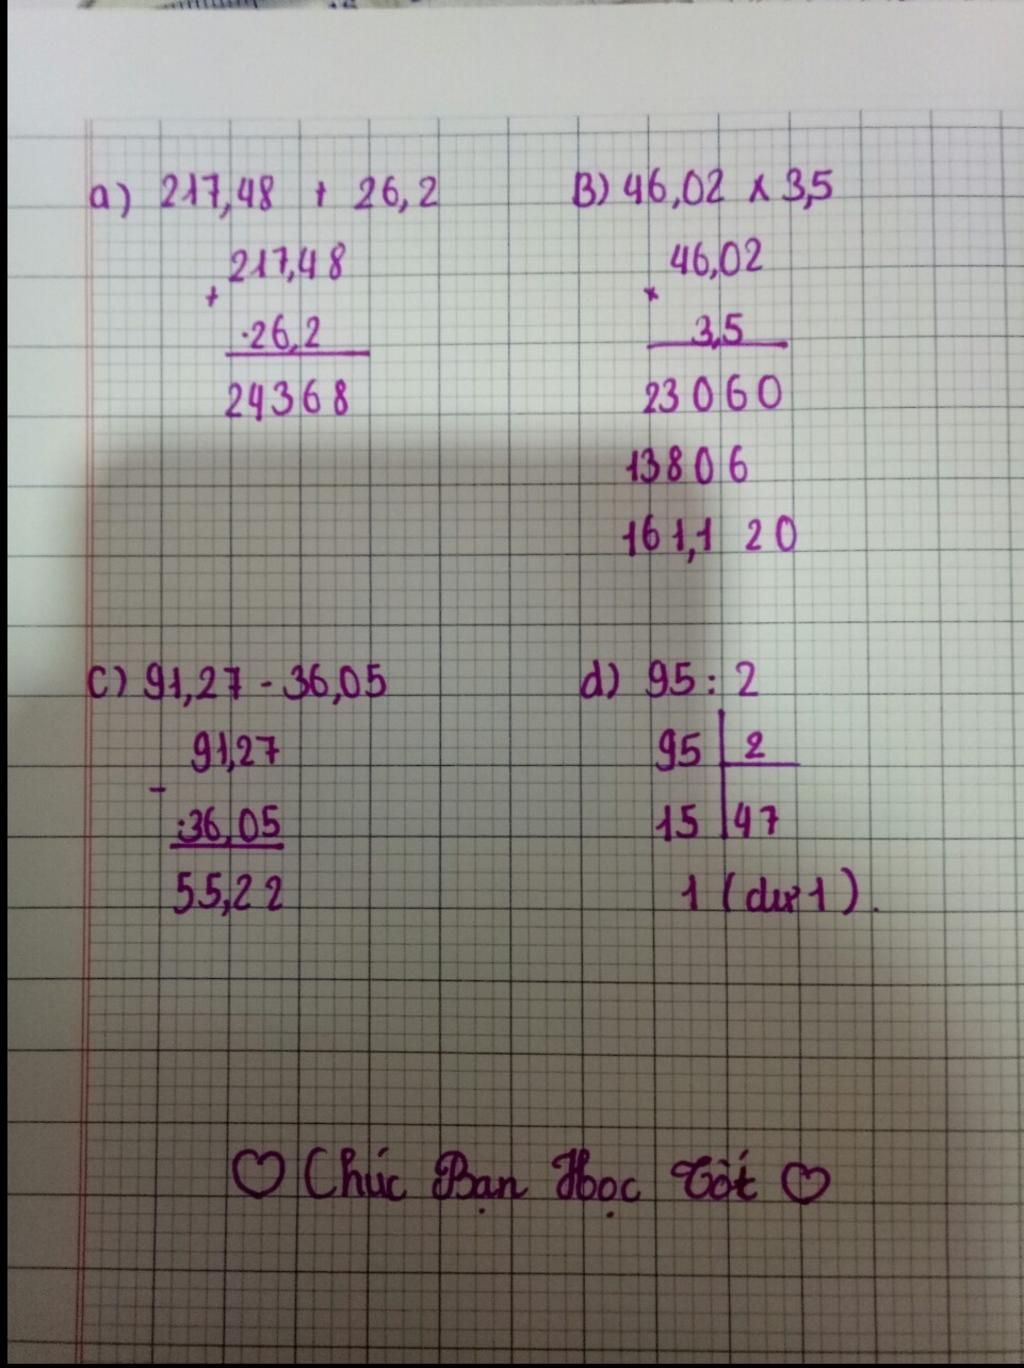 a) 217,48 + 26,2
217,48
+
26,2
24368
B) 46,02 x 3,5
46,02
x
3,5
23060
13806
161,1 20
c) 91,27 - 36,05
91,27
-
36,05
55,22
d) 95 : 2
95 2
15 47
1 (dư 1).
♡ Chúc Bạn Học Tốt ♡